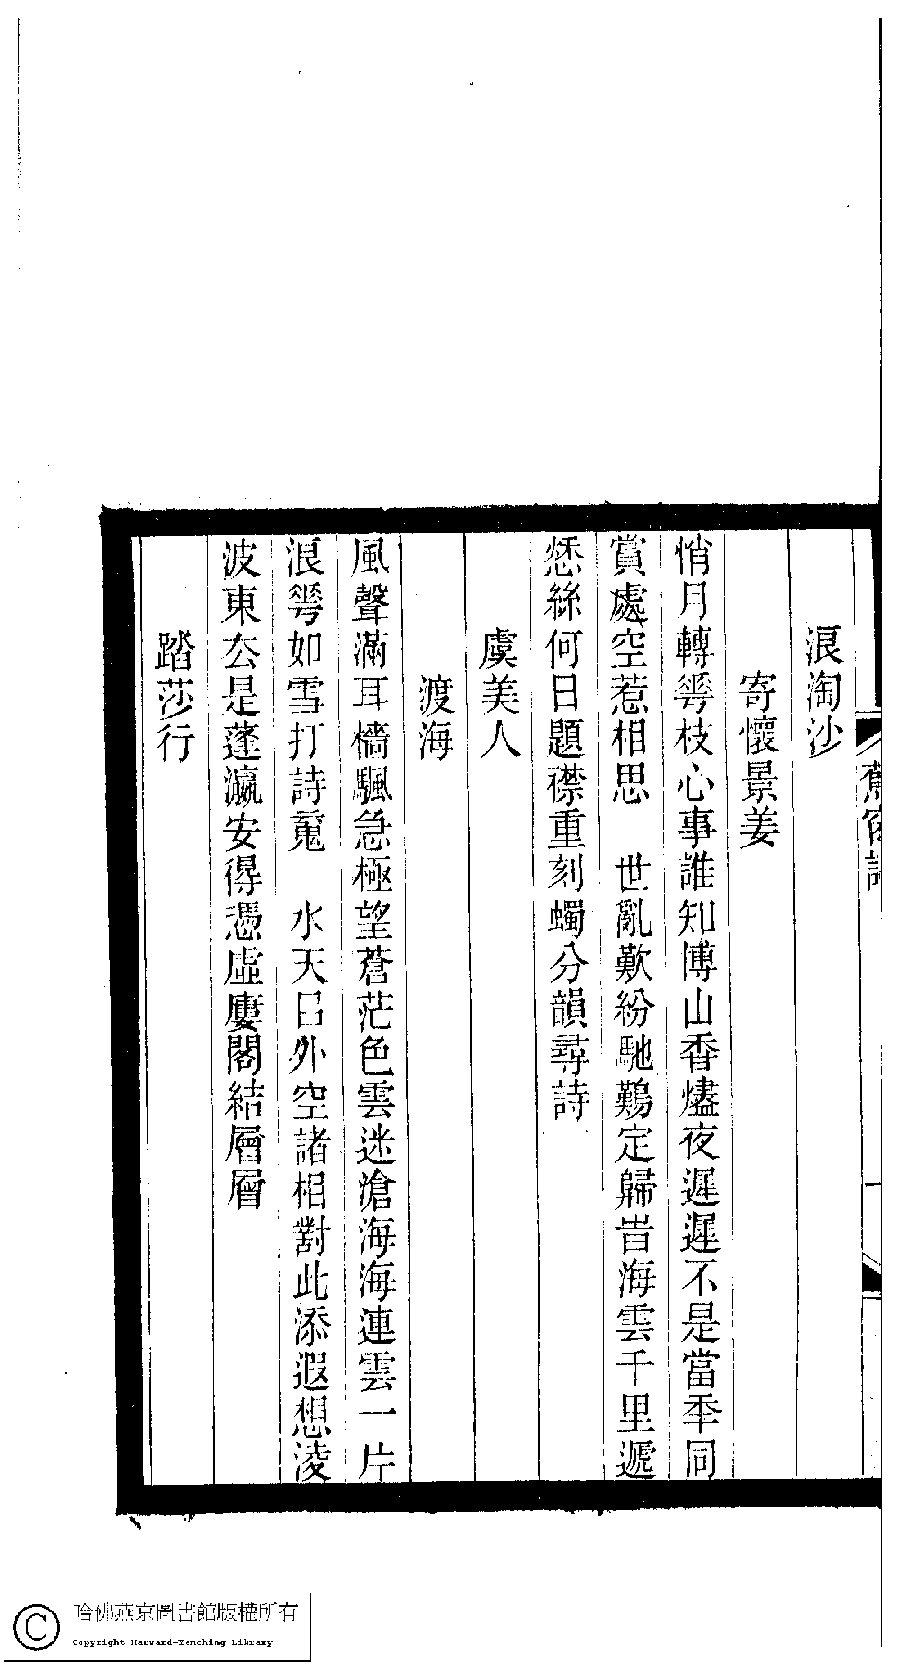 浪淘沙
寄懷景姜
悄月轉䔢枝心事誰知博山香燼夜遲遲不是當秊同
賞處空惹相思　世亂歎紛馳鷄定歸旹海雲千里遞
愁絲何日題襟重刻蠋分韻尋詩
虞美人
渡海
風聲滿耳檣颿急極望蒼茫色雲迷滄海海連雲一片
浪䔢如雪打詩䰟　水天日外空諸相對此添遐想淩
波東厺是蓬瀛安得憑虛廔閣結層層
踏莎行
哈佛燕京圖書館版權所有
Copyright Harvard-Yenching Library